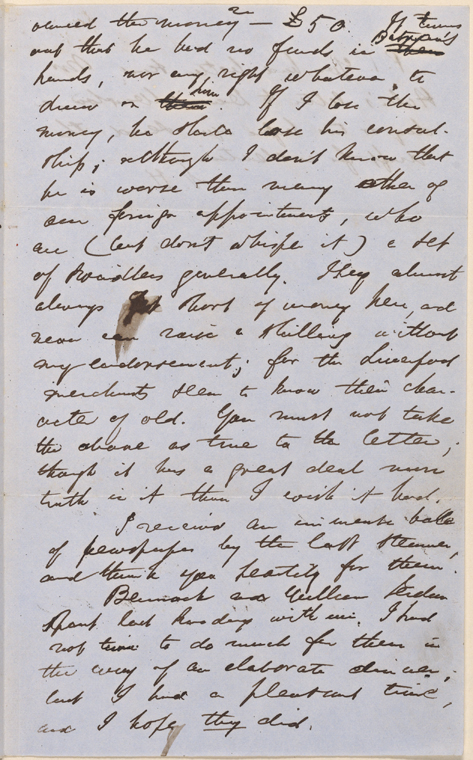 owned the money — £50. It turns
out that he had no funds in Browin's
hands, nor any right whatever to
draw on him. If I lose the
money, he shall lose his consul-
ship; although I don't know that
he is worse than many other of
our foreign appointments, who
are (but don't whisper it) a set
of swindlers generally. They almost
always get short of money here, and
never can raise a shilling without
my endorsement; for the Liverpool
merchants seem to know their char-
acter of old. You must not take
the above as true to the letter,
though it has a great deal more
truth in it than I wish it had.
I received an immense bale
of newspapers by the last steamer,
and thank you heartily for them.
Bennoch and William Jerdan
spent last Sunday with me. I had
not time to do much for them in
the way of an elaborate dinner;
but I had a pleasant time,
and I hope they did.